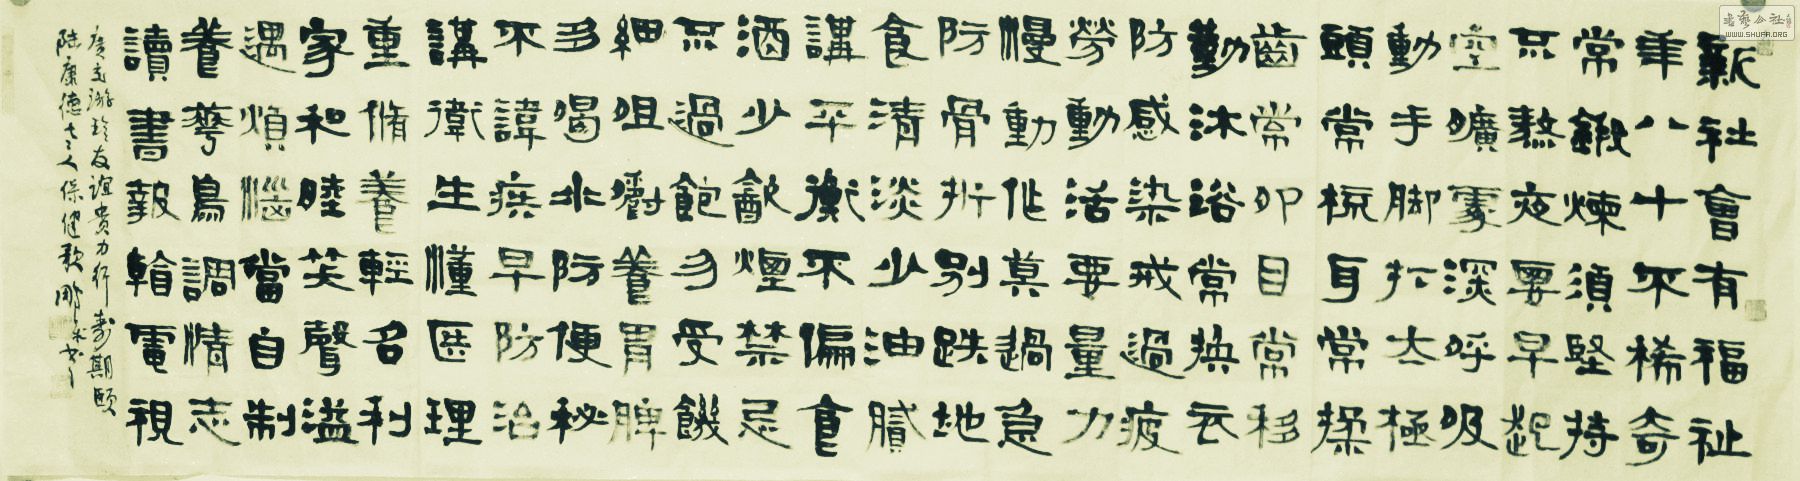 新社會有福祉
年八十不稀奇
常鍛煉須堅持
不熬夜要早起
空曠處深呼吸
動手脚打太極
頭常梳耳常揉
齒常叩目常移
勤沐浴常换衣
防感染戒過疲
勞動活要量力
慢動作莫過急
防骨折别跌地
食清淡少油膩
講平衡不偏食
酒少飲煙禁忌
不過飽勿受饑
細咀嚼養胃脾
多喝水防便秘
不諱疾早防治
講衛生懂医理
重脩養輕名利
家和睦笑聲溢
遇煩惱當自制
養華鳥調情志
讀書報看電視
廣交游珍友誼貴力行壽期頤
陸康德老人保健歌
書藝公社
WWW.SHUFA.ORG